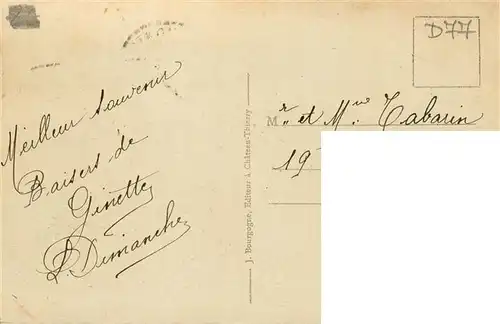 Meilleur souvenir
Baisers de
Ginette
Dimanche
J. Bourgogne, Editeur à Château-Thierry
D77
Mr et Mme Tabarin
19